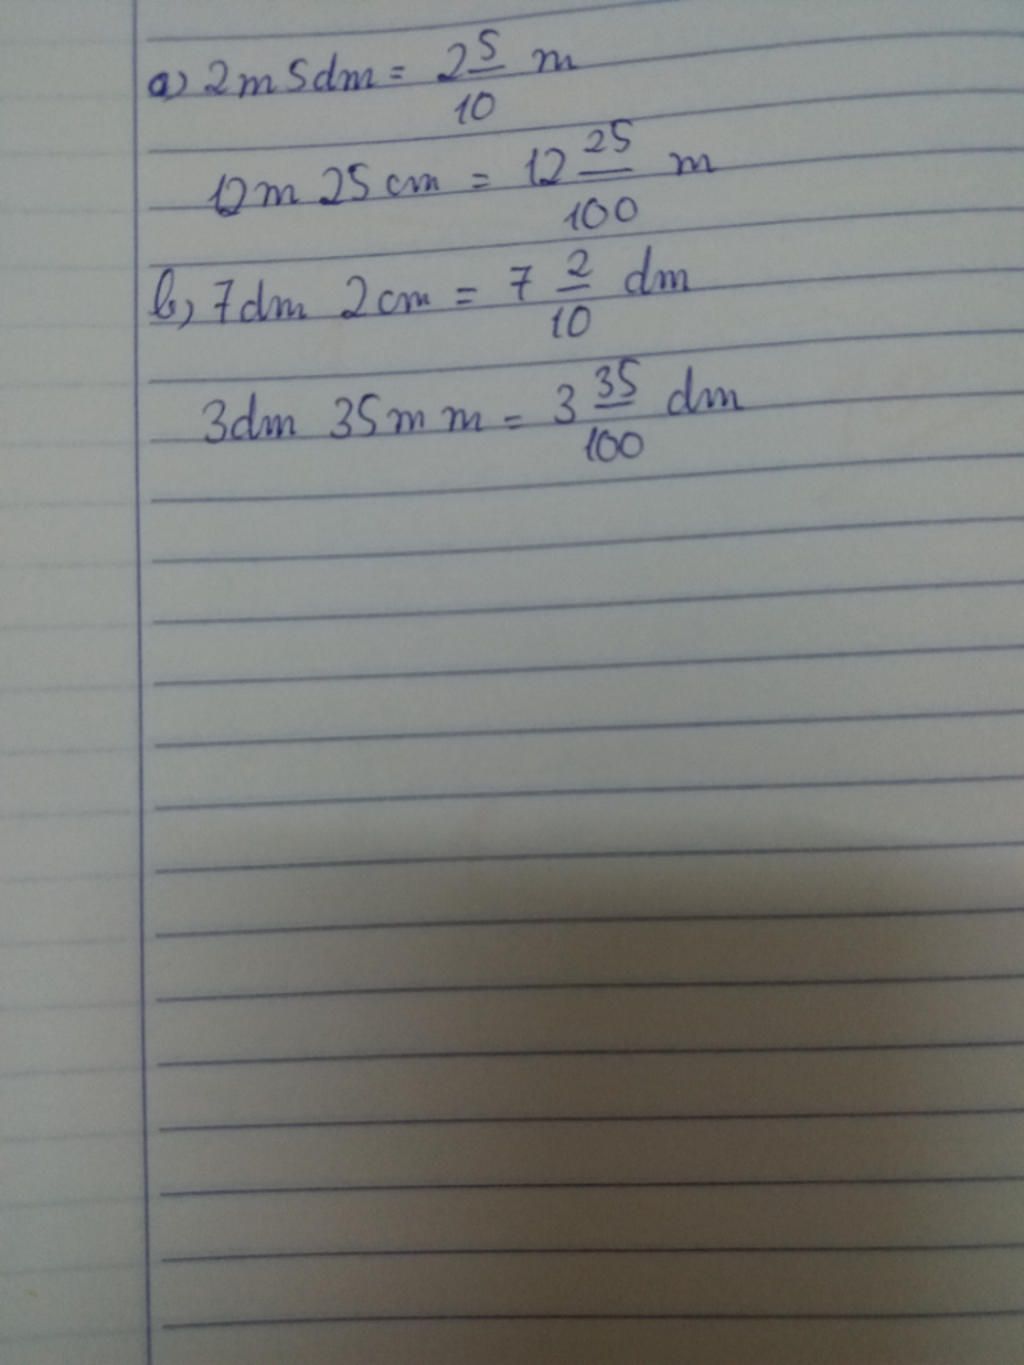 a) 2m 5dm = 2 5/10 m
12m 25cm = 12 25/100 m
b) 7dm 2cm = 7 2/10 dm
3dm 35mm = 3 35/100 dm